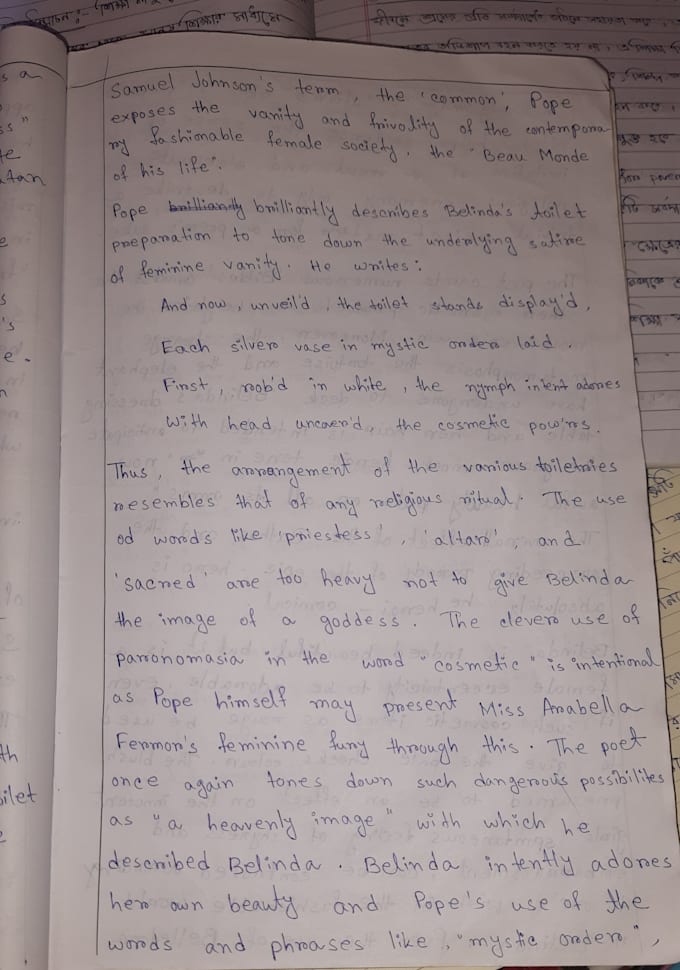 Samuel Johnson's term, the 'common', Pope
exposes the vanity and frivolity of the contempora-
ry fashionable female society, the "Beau Monde
of his life".
Pope brilliantly brilliantly describes Belinda's toilet
preparation to tone down the underlying satire
of feminine vanity. He writes:
And now, unveil'd, the toilet stands display'd,
Each silver vase in mystic order laid.
First, rob'd in white, the nymph intent adores
With head uncover'd, the cosmetic pow'rs.
Thus, the arrangement of the various toiletries
resembles that of any religious ritual. The use
od words like 'priestess', 'altar', and
'sacred' are too heavy not to give Belinda
the image of a goddess. The clever use of
paronomasia in the word "cosmetic" is intentional
as Pope himself may present Miss Arabella
Fermor's feminine fury through this. The poet
once again tones down such dangerous possibilites
as "a heavenly image" with which he
described Belinda. Belinda intently adores
her own beauty and Pope's use of the
words and phrases like, "mystic order",